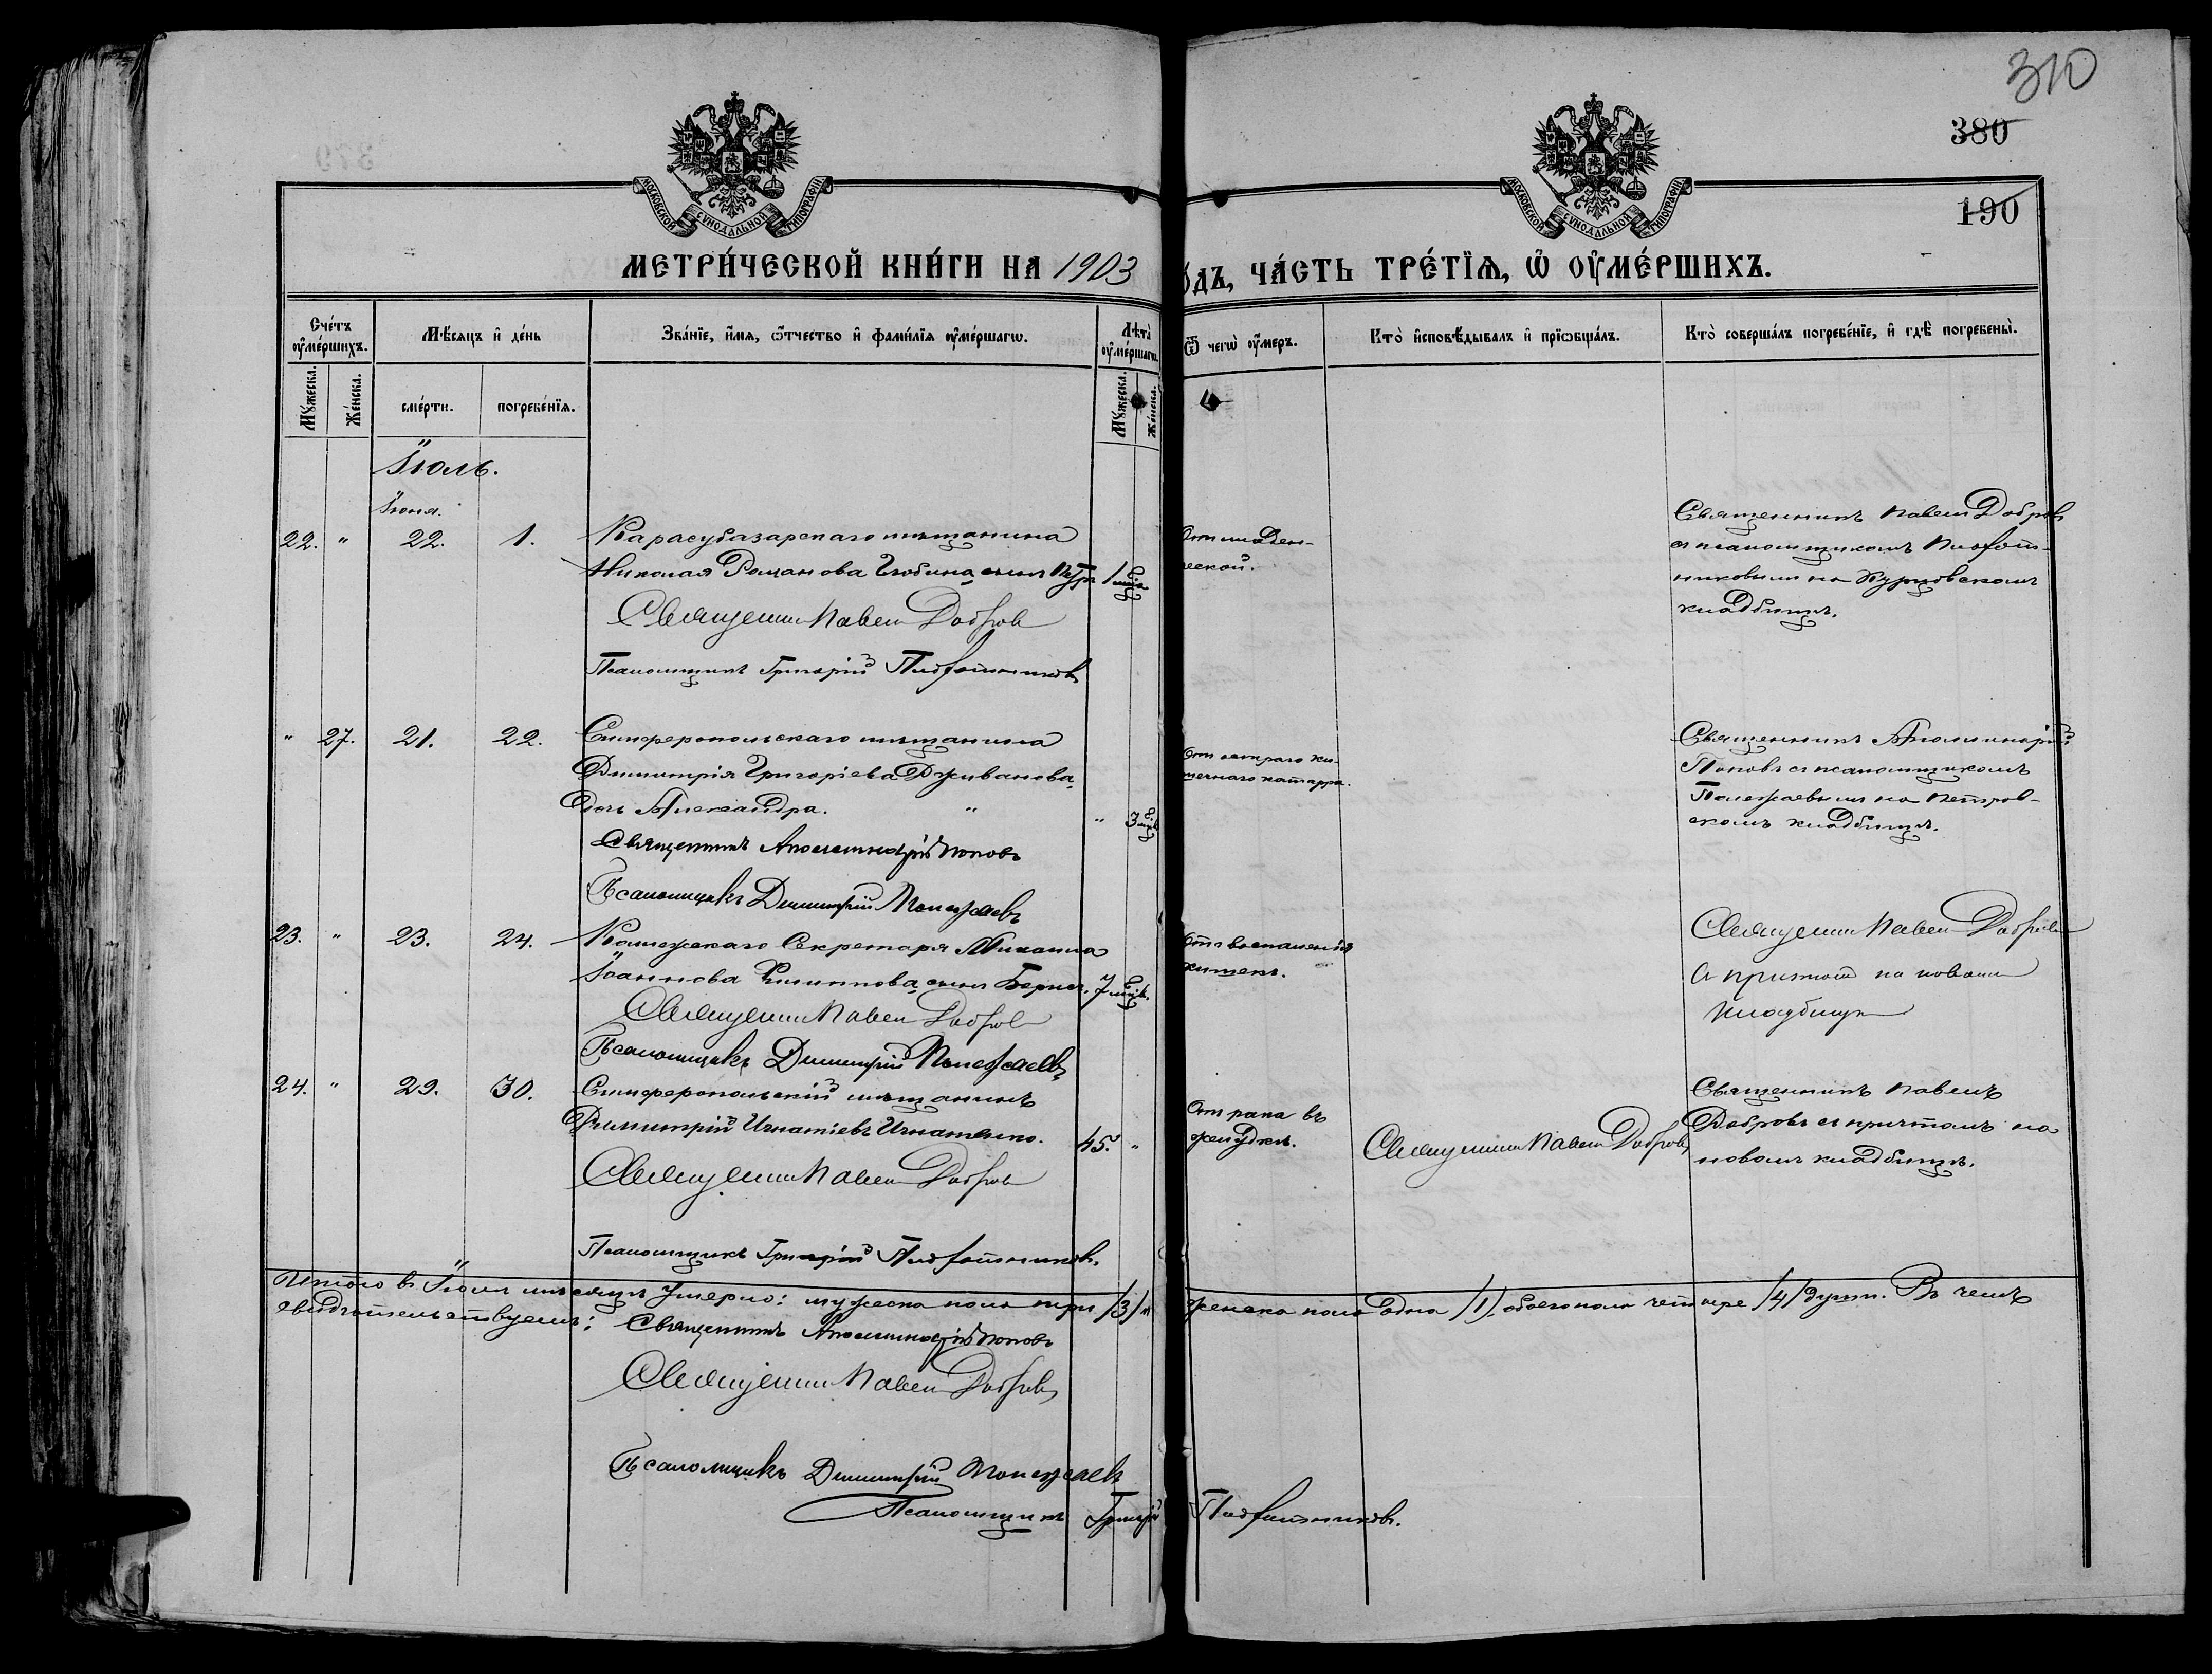 310
380
190
МОСКОВСКОЙ СѴНОДАЛЬНОЙ ТИПОГРАФІИ
МОСКОВСКОЙ СѴНОДАЛЬНОЙ ТИПОГРАФІИ
МЕТРИ́ЧЕСКОЙ КНИ́ГИ НА 1903
ОДЪ, ЧА́СТЬ ТРЕ́ТЇѦ, Ѡ҆ ОУ҆МЕ́РШИХЪ.
Сче́тъ оу҆ме́ршихъ.
Мѣ́сяцъ и҆ де́нь
Зва́нїе, и҆́мя, ѻ҆́тчество и҆ фами́лїя оу҆ме́ршагѡ.
Лѣта̀ оу҆ме́ршагѡ.
Ѿ чегѡ̀ оу҆́меръ.
Кто̀ и҆сповѣ́дывалъ и҆ прїѡбща́лъ.
Кто̀ соверша́лъ погребе́нїе, и҆ гдѣ̀ погребены̀.
Мꙋ́жеска.
Же́нска.
сме́рти.
погребе́нїя.
Мꙋ́жеска.
Же́нска.
Іюль.
Іюня.
22. " 22. 1. Карасубазарскаго мѣщанина
Николая Романова сынъ Петръ 1 мѣс.
Священникъ Павелъ Добровъ
Псаломщикъ Григорій Плотниковъ
От младен-
ческой.
Священникъ Павелъ Добровъ
съ псаломщикомъ Плот-
никовымъ на Курцовскомъ
кладбищѣ.
" 27. 21. 22. Симферопольскаго мѣщанина
Димитрія Григоріева Дживанова,
дочь Александра. " " 3 мѣс.
Священникъ Аполлинарій Поповъ
Псаломщикъ Димитрій Полежаевъ
Отъ остраго ки-
шечнаго катарра.
Священникъ Аполлинарій
Поповъ съ псаломщикомъ
Полежаевымъ на Петров-
скомъ кладбищѣ.
23. " 23. 24. Коллежскаго Секретаря Михаила
Іоаннова Филиппова, сынъ Борисъ. 7 мѣс.
Священникъ Павелъ Добровъ
Псаломщикъ Димитрій Полежаевъ
Отъ воспаленія
кишекъ.
Священникъ Павелъ Добровъ
съ причтомъ на новомъ
кладбищѣ
24. " 29. 30. Симферопольскій мѣщанинъ
Димитрій Игнатіевъ Игнатенко. 45. "
Священникъ Павелъ Добровъ
Псаломщикъ Григорій Плотниковъ.
Отъ рака въ
желудкѣ.
Священникъ Павелъ Добровъ
Священникъ Павелъ
Добровъ съ причтомъ на
новомъ кладбищѣ.
Итого въ Іюлѣ мѣсяцѣ умерло: мужеска пола три /3/ и женска пола одна /1/, обоего пола четыре /4/ души. Въ чемъ
свидѣтельствуемъ: Священникъ Аполлинарій Поповъ
Священникъ Павелъ Добровъ
Псаломщикъ Димитрій Полежаевъ
Псаломщикъ Григорій Плотниковъ.